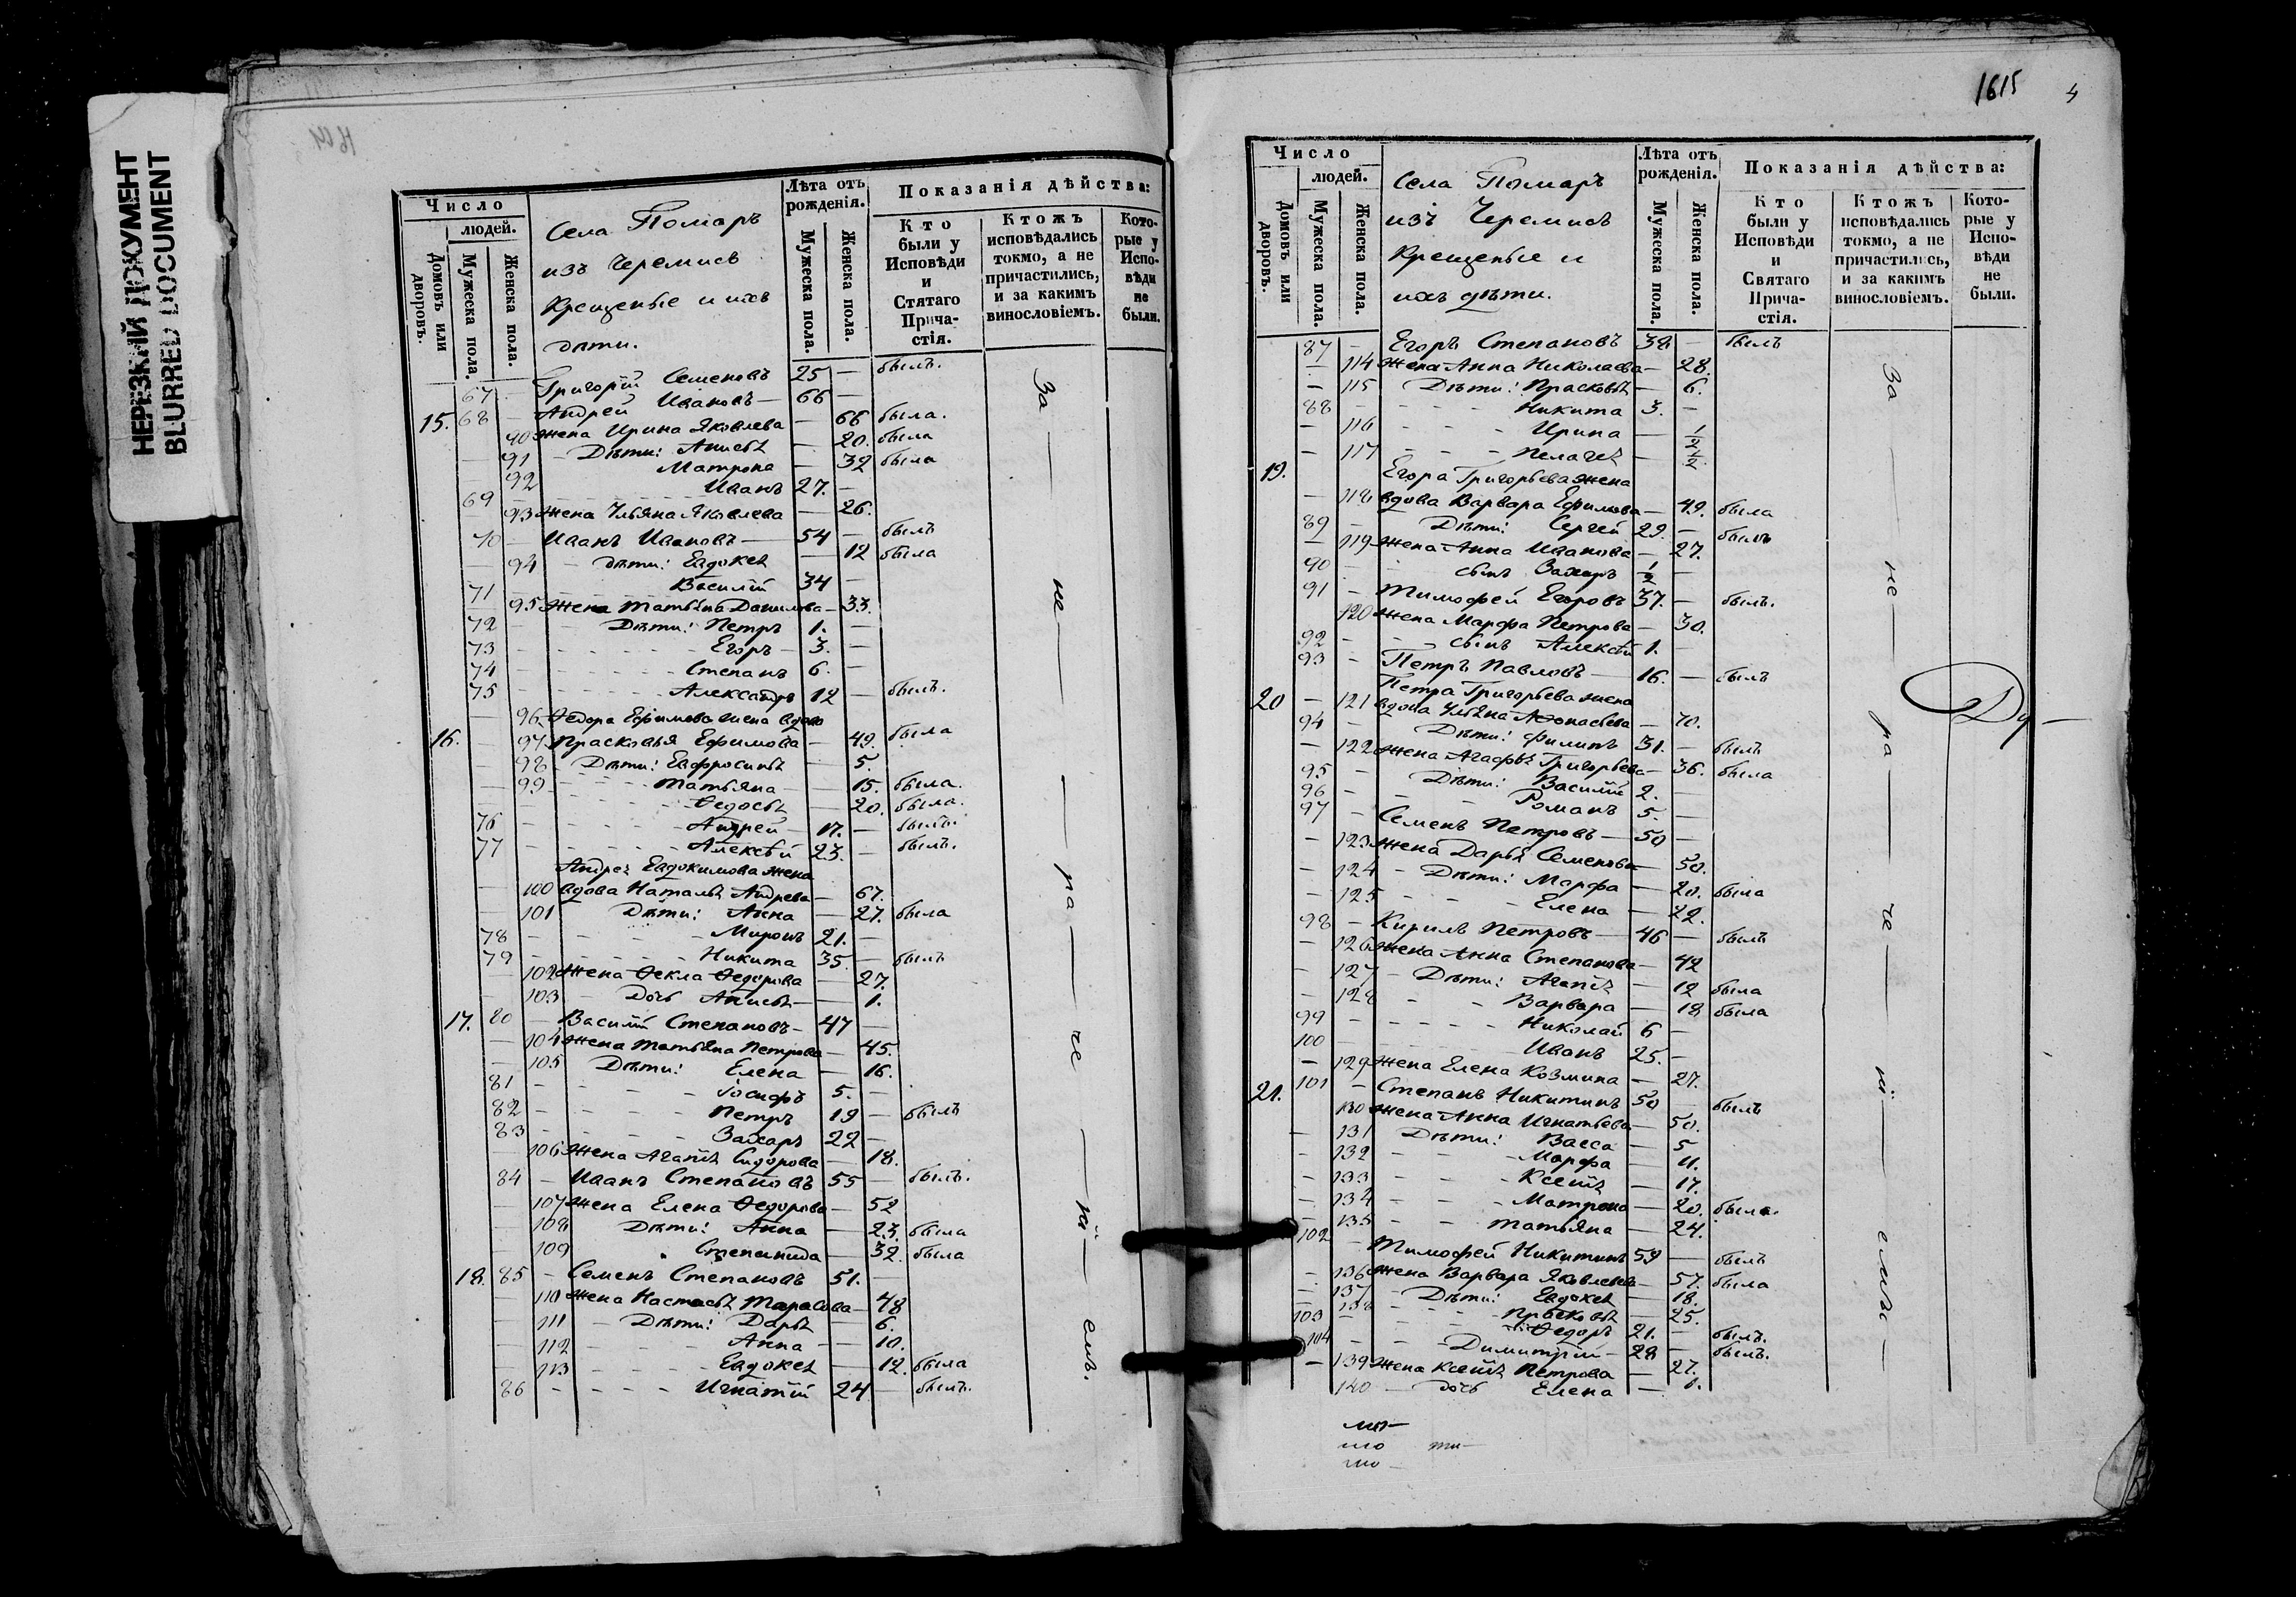 НЕРЕЗКИЙ ДОКУМЕНТ
BLURRED DOCUMENT
Число
людей.
Домовъ или дворовъ.
Мужеска пола.
Женска пола.
Села Помаръ
изъ Черемисъ
Крещеные и ихъ
дѣти.
Лѣта отъ рожденія.
Мужеска пола.
Женска пола.
Показанія дѣйства:
Кто были у Исповѣди и Стятаго Прича-стія.
Ктожъ исповѣдались токмо, а не причастились, и за какимъ винословіемъ.
Кото-рые у Испо-вѣди не были.
67 - Григорій Семеновъ 25 - былъ.
15. 68 - Андрей Ивановъ - 66 -
- 90 жена Ирина Яковлева - 66 была.
- 91 - Дѣти: Анисья - 20. была
- 92 Матрона - 32 была
69 - Иванъ 27. -
- 93 жена Ульяна Яковлева - 26.
70 - Иванъ Ивановъ - 54 - былъ
- 94 - дѣти: Евдокея - 12 была
71 - Василій 34 -
- 95 жена Татьяна Данилова - 33.
72 - Дѣти: Петръ 1. -
73 - Егоръ - 3. -
74 - Степанъ 6. -
75 - Александръ 12 - былъ.
- 96 Ѳедора Ефимова жена вдова
16. - 97 Прасковья Ефимова - 49. была
- 98 - Дѣти: Евфросинья - 5
- 99 Татьяна - 15. была.
- Ѳедосья - 20. была.
76 - Андрей - 17. - былъ.
77 - Алексѣй 23. - былъ.
Андрея Евдокимова жена
- 100 вдова Наталья Андрева - 67.
- 101 Дѣти: Анна - 27. была
78 - Миронъ 21. -
79 - Никита 35. - былъ
- 102 жена Ѳекла Ѳедорова - 27.
- 103 - дочь Анисья - 1.
17. 80 - Василій Степановъ - 47 -
- 104 жена Татьяна Петрова - 45.
- 105 Дѣти: Елена - 16.
81 - Іосифъ 5. -
82 - Петръ 19 - былъ
83 - Захаръ 22 -
- 106 жена Агапія Сидорова - 18.
84 - Иванъ Степановъ 55 - былъ.
- 107 жена Елена Ѳедорова - 52
- 108 Дѣти: Анна - 23. была
- 109 Степанида - 32. была
18. 85 - Семенъ Степановъ 51. -
- 110 жена Настасья Тарасова - 48
- 111 - Дѣти: Дарья - 6.
- 112 Анна - 10.
- 113 Евдокея - 12. была
86 - Игнатій 24 - былъ.
За - не - ра - че - ні - емъ.
1615
4
Число
людей.
Домовъ или дворовъ.
Мужеска пола.
Женска пола.
Села Помаръ
изъ Черемисъ
Крещеные и
ихъ дѣти.
Лѣта отъ рожденія.
Мужеска пола.
Женска пола.
Показанія дѣйства:
Кто были у Исповѣди и Святаго Прича-стія.
Ктожъ исповѣдались токмо, а не причастились, и за какимъ винословіемъ.
Кото-рые у Испо-вѣди не были.
87 - Егоръ Степановъ 38 - былъ
- 114 жена Анна Николаева - 28.
- 115 Дѣти: Прасковья - 6.
88 - Никита 3. -
- 116 Ирина - 1/2
- 117 Пелагея - 1/2.
19. Егора Григорьева жена
- 118 вдова Варвара Ефимова - 49. была
89 - Дѣти: Сергей 29. - былъ
- 119 жена Анна Иванова - 27.
90 - сынъ Захаръ 1/2 -
91 - Тимофей Егоровъ 37. - былъ.
120 жена Марфа Петрова - 30.
92 - сынъ Алексѣй 1. -
93 - Петръ Павловъ - 16. - былъ
Петра Григорьева жена
20 - 121 вдова Ульяна Афонасьева - 70.
94 - Дѣти: Филипъ 31. - былъ
- 122 жена Агафья Григорьева - 36. была
95 - Дѣти: Василій 2. -
96 - Романъ 5. -
97 - Семенъ Петровъ - 50 -
- 123 жена Дарья Семенова - 50.
- 124 - Дѣти: Марфа - 20. была
- 125 Елена - 22.
98 - Кирилъ Петровъ - 46 - былъ
- 126 жена Анна Степанова - 42
- 127 - Дѣти: Агапія - 12 была
- 128 Варвара - 18 была
99 - Николай 6 -
100 - Иванъ 25. -
- 129 жена Елена Козмина - 27.
21. 101 - Степанъ Никитинъ 50 - былъ
130 жена Анна Игнатьева - 50.
- 131 Дѣти: Васса - 5
- 132 Марфа - 11.
- 133 Ксенія - 17.
- 134 Матрона - 20. была.
- 135 Татьяна - 24.
102 - Тимофей Никитинъ 59 - былъ
- 136 жена Варвара Яковлева - 57. была
- 137 - Дѣти: Евдокея - 18.
- 138 Прасковья - 25.
103 - Ѳедоръ 21. - былъ.
104 - Димитрій - 28 - былъ.
- 139 жена Ксенія Петрова - 27.
140 - дочь Елена - 1.
За - не - ра - че - ні - емъ -